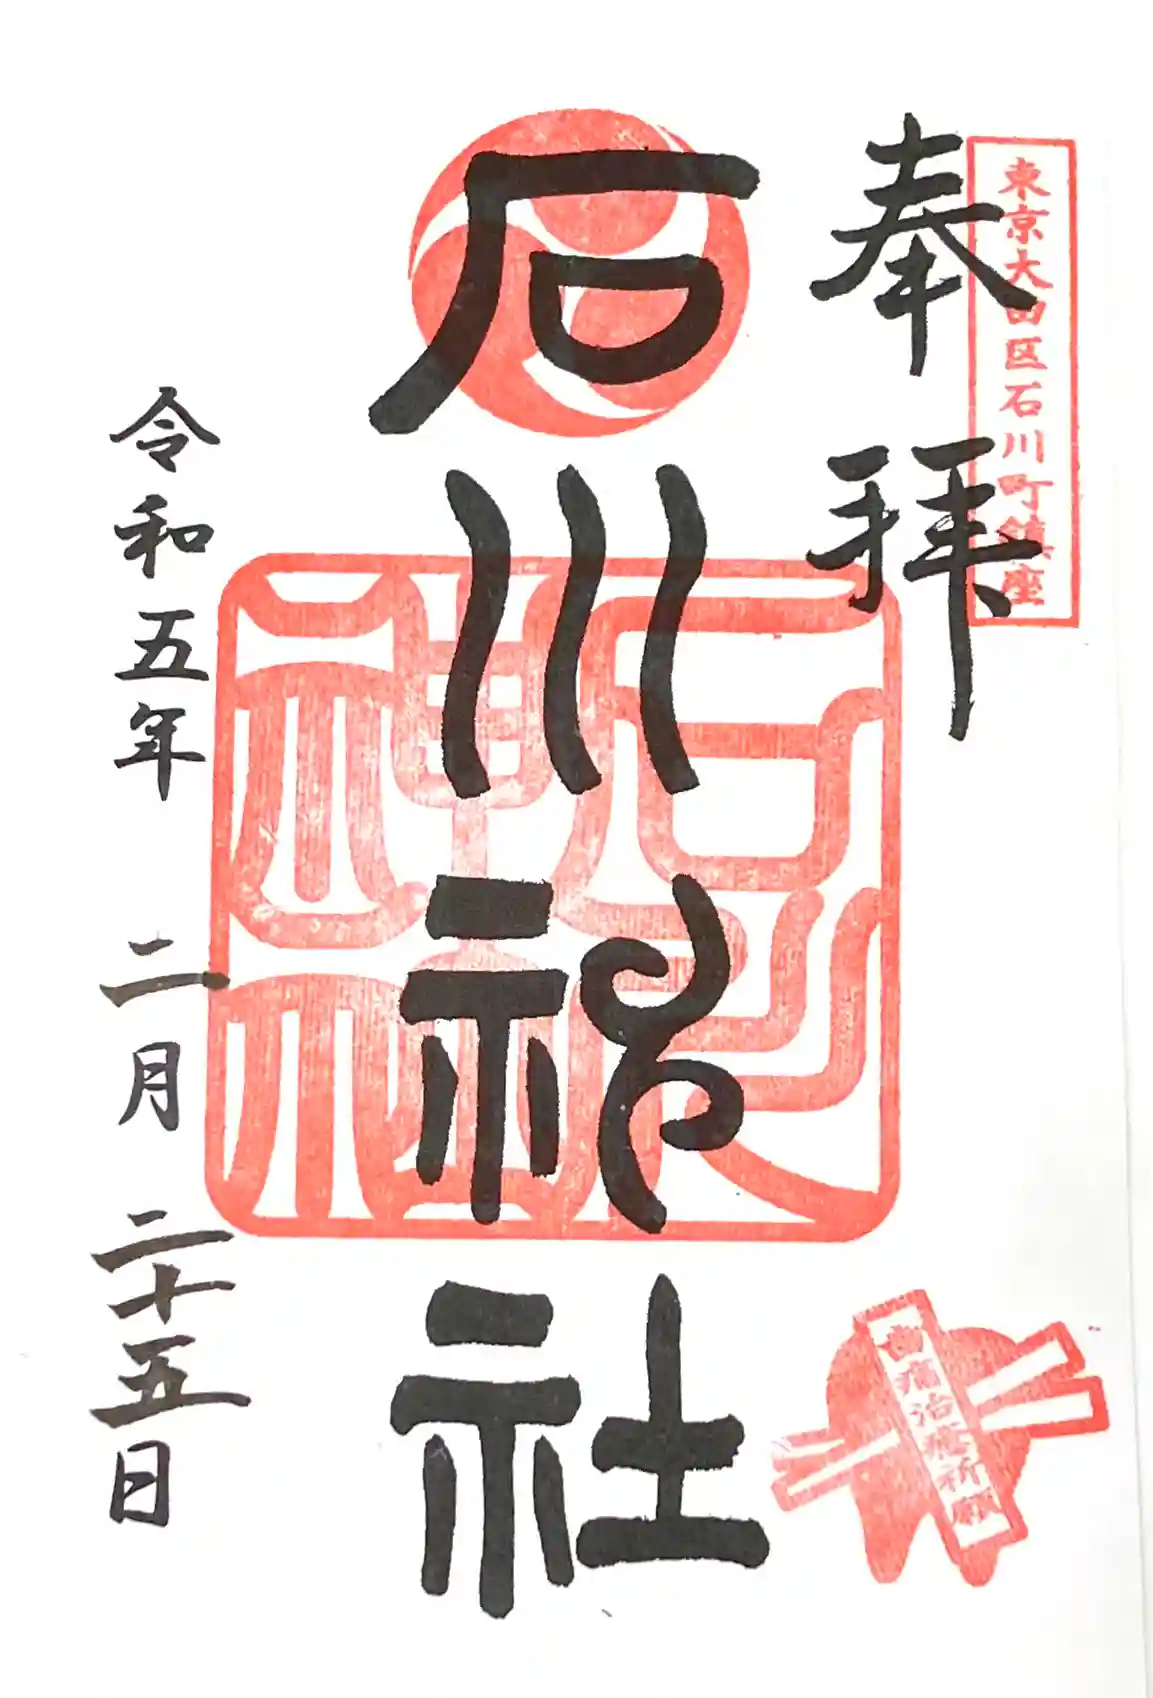 東京大田区石川町鎮座
奉拝
石川神社
石川神社
令和五年 二月 二十五日
歯痛治癒祈願